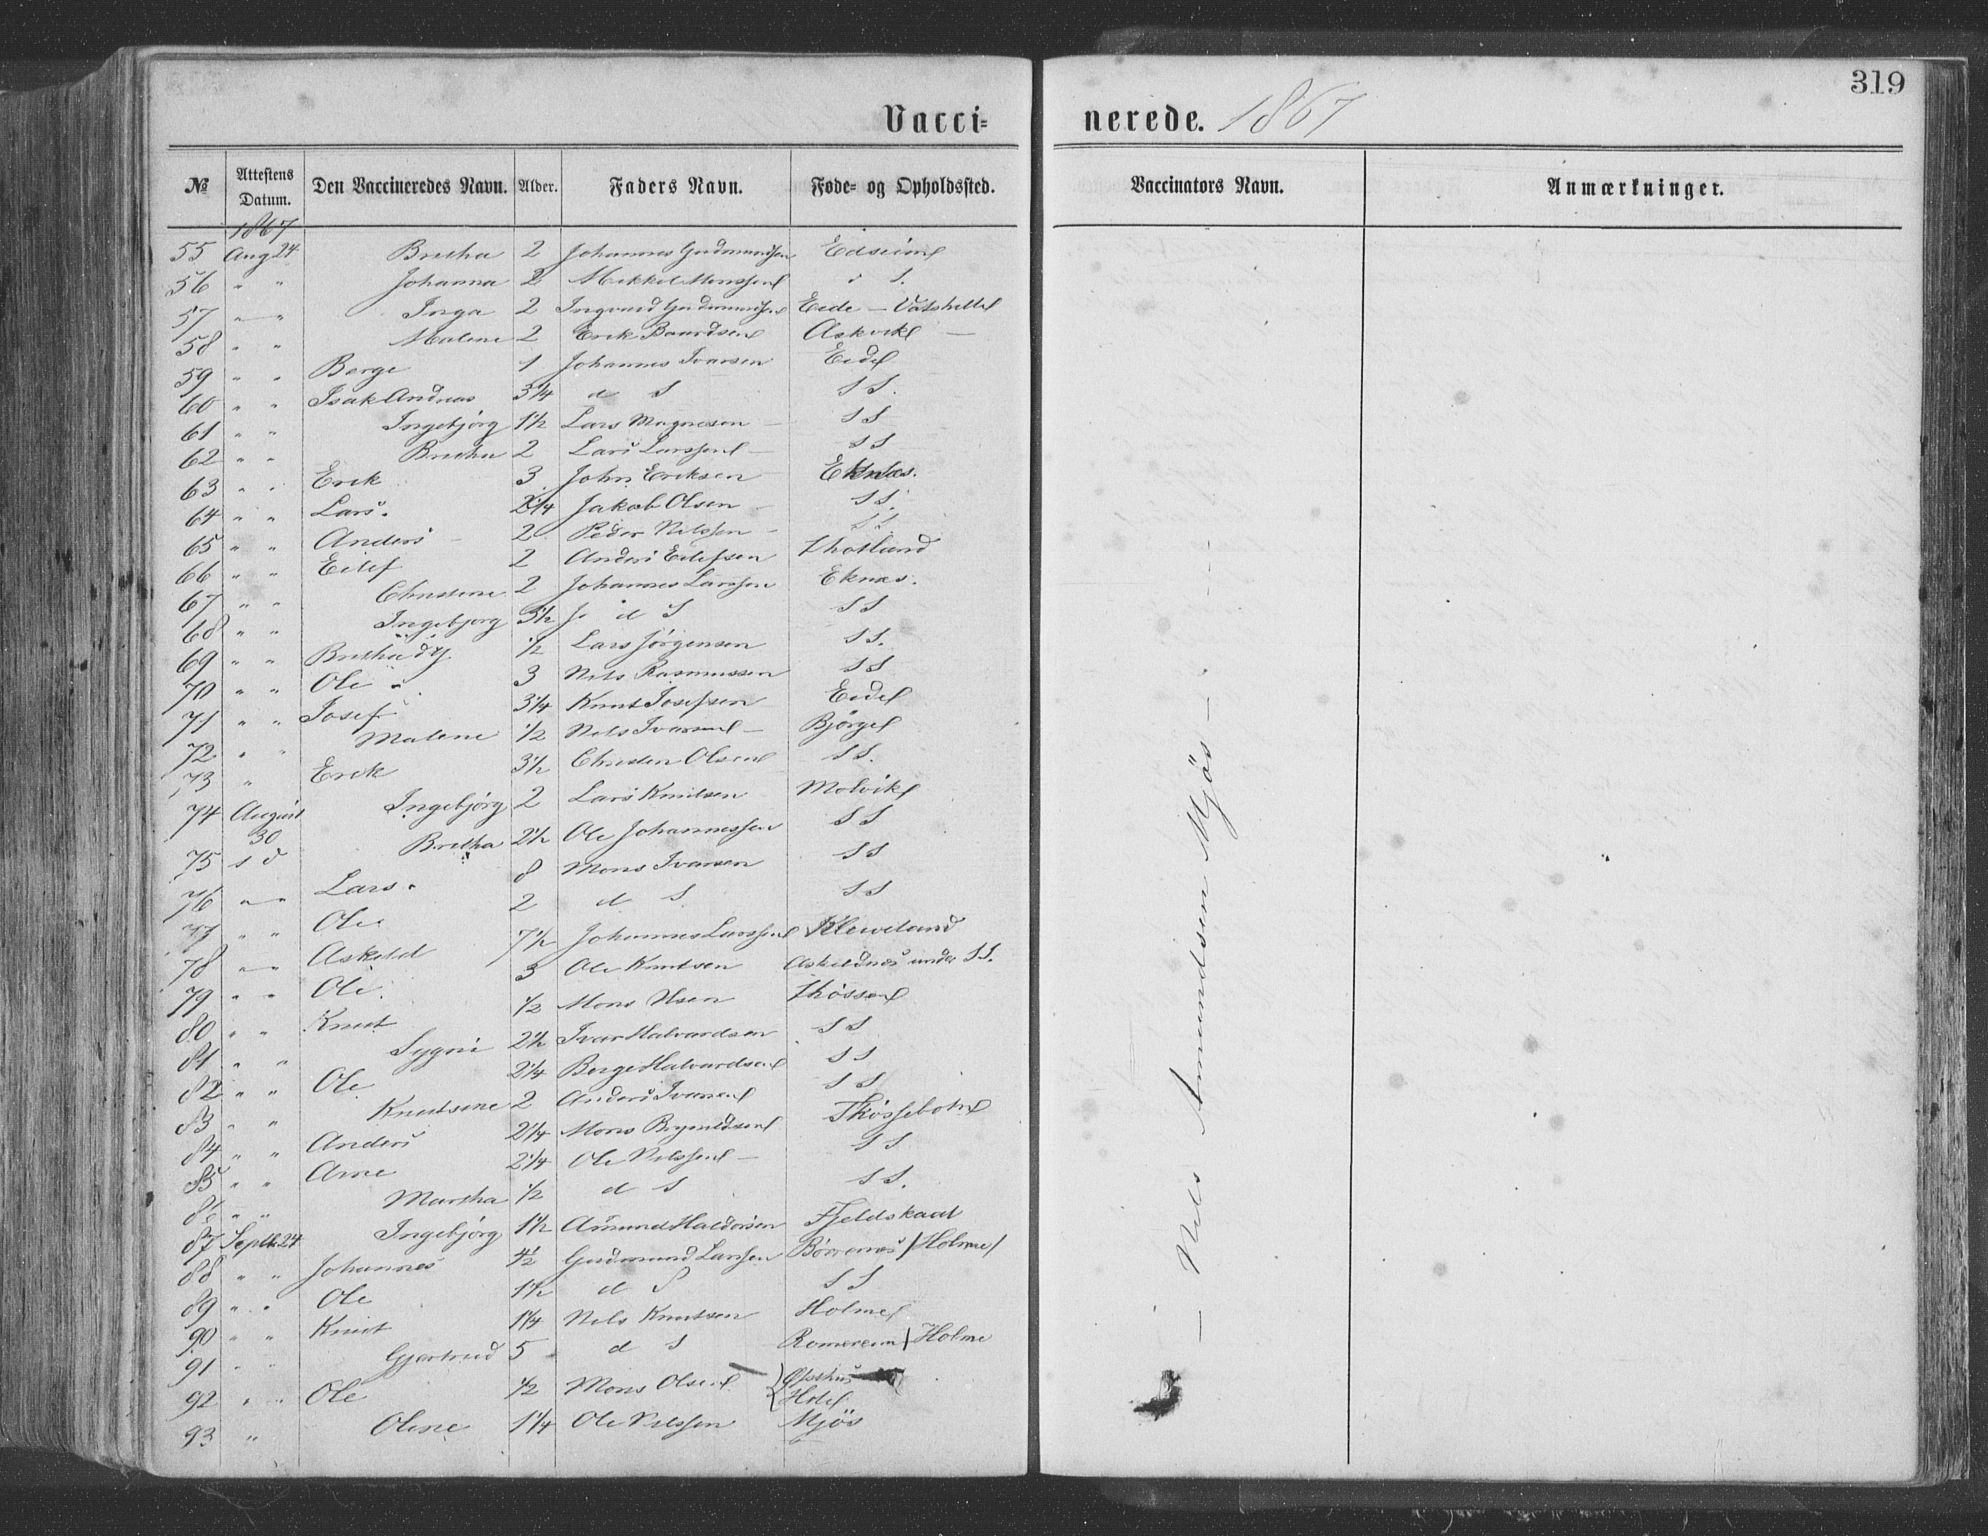 319
Vacci= nerede. 1867
№ Attestens Datum. Den Vaccineredes Navn. Alder. Faders Navn. Føde= og Opholdssted. Vaccinators Navn. Anmærkninger.
1867
55 Aug 24 Bretha 2 Johannes Gudmundsen Edseim
56 " " Johanna 2 Mikkel Monssen d S.
57 " " Inga 2 Ingvard Gudmundsen Eide - Vatshelle
58 " " Malene 2 Erik Baardsen Askvik -
59 " " Berge 1 Johannes Ivarsen Eide
60 " " Isak Andreas 3¼ d S S S.
61 " " Ingebjørg 1½ Lars Magnesen - S S
62 " " Bretha 2 Lars Larssen - S S
63 " " Erik 3 John Eriksen - Eknæs.
64 " " Lars. 2¼ Jakob Olsen - S S.
65 " " Anders - 2 Peder Nilssen - S S
66 " " Eilef 2 Anders Eilefsen Thotland
67 " " Christene 2 Johannes Larssen Eknæs.
68 " " Ingebjørg 3½ J. d S S S
69 " " Bretha ½ Lars Jørgensen S S.
70 " " Ole 3 Nils Rasmussen S S
71 " " Josef 3¼ Knut Josefsen Eide
72 " " Malene ½ Nils Ivarsen - Bjørge
73 " Erik 3½ Christen Olsen S S.
74 August 30 Ingebjørg 2 Lars Knutsen Molvik
75 s d Bretha 2½ Ole Johannessen S S
76 " " Lars. 8 Mons Ivarsen S S
77 " " Ole 2 d S S S
78 " " Askeld 7½ Johannes Larssen Kleiveland
79 " " Ole 3 Ole Knutsen Askildnes under S S.
80 " " Knut ½ Mons Olsen Thøssen
81 " " Sygni 2½ Ivar Halvardsen S S
82 " " Ole 2¼ Berge Halvardsen S S
83 " " Knutsine 2 Anders Ivarsen S S
84 " " Anders 2¼ Mons Brynildsen Thøssebotn
85 " " Arne 2¼ Ole Nilssen - S S
86 " " Martha ½ d S S S.
87 Septb. 24 Ingebjørg 1½ Amund Haldorsen Fjeldskaal
88 " " Johannes 4½ Gudmund Larssen Børrenes / Holme /
89 " " Ole 1½ d S S S
90 " " Knut 1¼ Nils Knutsen Holme
91 " " Gjertrud 5 d S Romereim / Holme
92 " " Ole ½ Mons Olsen Opshus Hole
93 " Oline 1¼ Ole Nilssen Mjøs
— Nils Amundsen Mjøs —